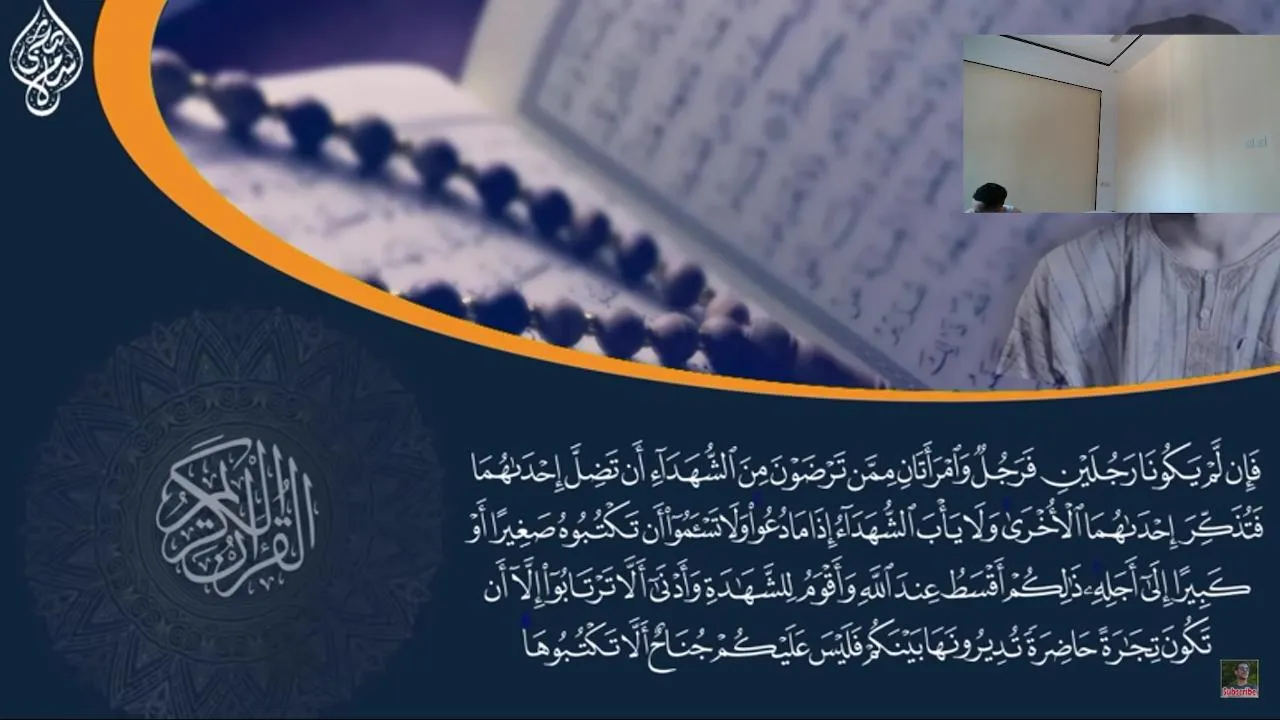 فَإِن لَّمْ يَكُونَا رَجُلَيْنِ فَرَجُلٌ وَٱمْرَأَتَانِ مِمَّن تَرْضَوْنَ مِنَ ٱلشُّهَدَآءِ أَن تَضِلَّ إِحْدَىٰهُمَا
فَتُذَكِّرَ إِحْدَىٰهُمَا ٱلْأُخْرَىٰ وَلَا يَأْبَ ٱلشُّهَدَآءُ إِذَا مَا دُعُوا۟ وَلَا تَسْـَٔمُوٓا۟ أَن تَكْتُبُوهُ صَغِيرًا أَوْ
كَبِيرًا إِلَىٰٓ أَجَلِهِۦ ذَٰلِكُمْ أَقْسَطُ عِندَ ٱللَّهِ وَأَقْوَمُ لِلشَّهَـٰدَةِ وَأَدْنَىٰٓ أَلَّا تَرْتَابُوٓا۟ إِلَّآ أَن
تَكُونَ تِجَـٰرَةً حَاضِرَةً تُدِيرُونَهَا بَيْنَكُمْ فَلَيْسَ عَلَيْكُمْ جُنَاحٌ أَلَّا تَكْتُبُوهَا
القرآن الكريم
Subscribe